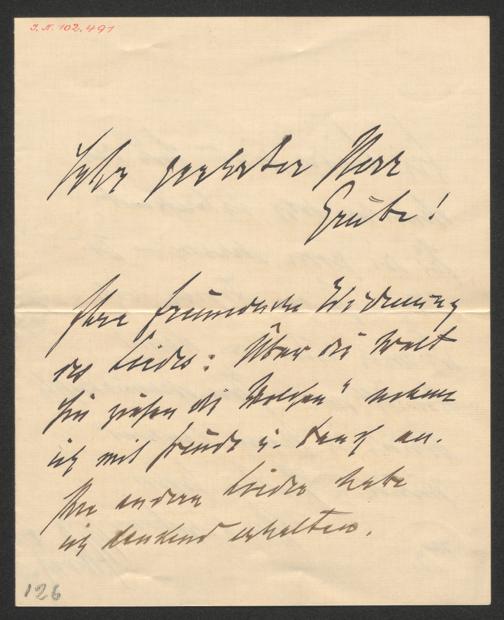 I.N. 102.491
Sehr geehrter Herr
Grübe!
Ihre freundliche Widmung
des Liedes: Über die Welt
hin ziehen die Wolken" nehme
ich mit Freude u. Dank an.
Ihre andern Lieder habe
ich dankend erhalten.
126